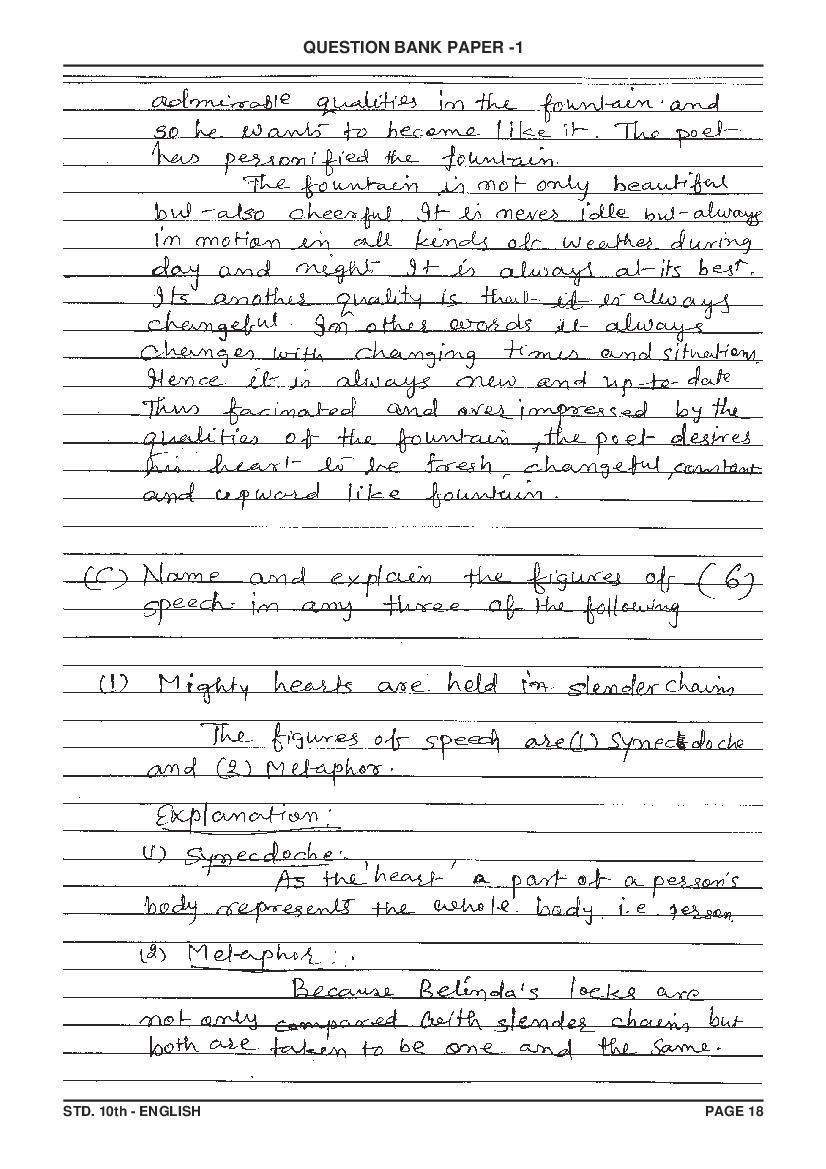 QUESTION BANK PAPER -1
admirable qualities in the fountain and
so he wants to become like it. The poet
has personified the fountain.
The fountain is not only beautiful
but also cheerful. It is never idle but always
in motion in all kinds of weather during
day and night. It is always at its best.
Its another quality is that it is always
changeful. In other words it always
changes with changing times and situations.
Hence it is always new and up-to-date
Thus facinated and over impressed by the
qualities of the fountain, the poet desires
his heart to be fresh, changeful, constant
and upward like fountain.
(C) Name and explain the figures of (6)
speech in any three of the following
(1) Mighty hearts are held in slender chains
The figures of speech are (1) Synecdoche
and (2) Metaphor.
Explanation:
(1) Synecdoche:
As the 'heart' a part of a person's
body represents the whole body i.e. person
(2) Metaphor:
Because Belinda's locks are
not only compared with slender chains but
both are taken to be one and the same.
STD. 10th - ENGLISH PAGE 18